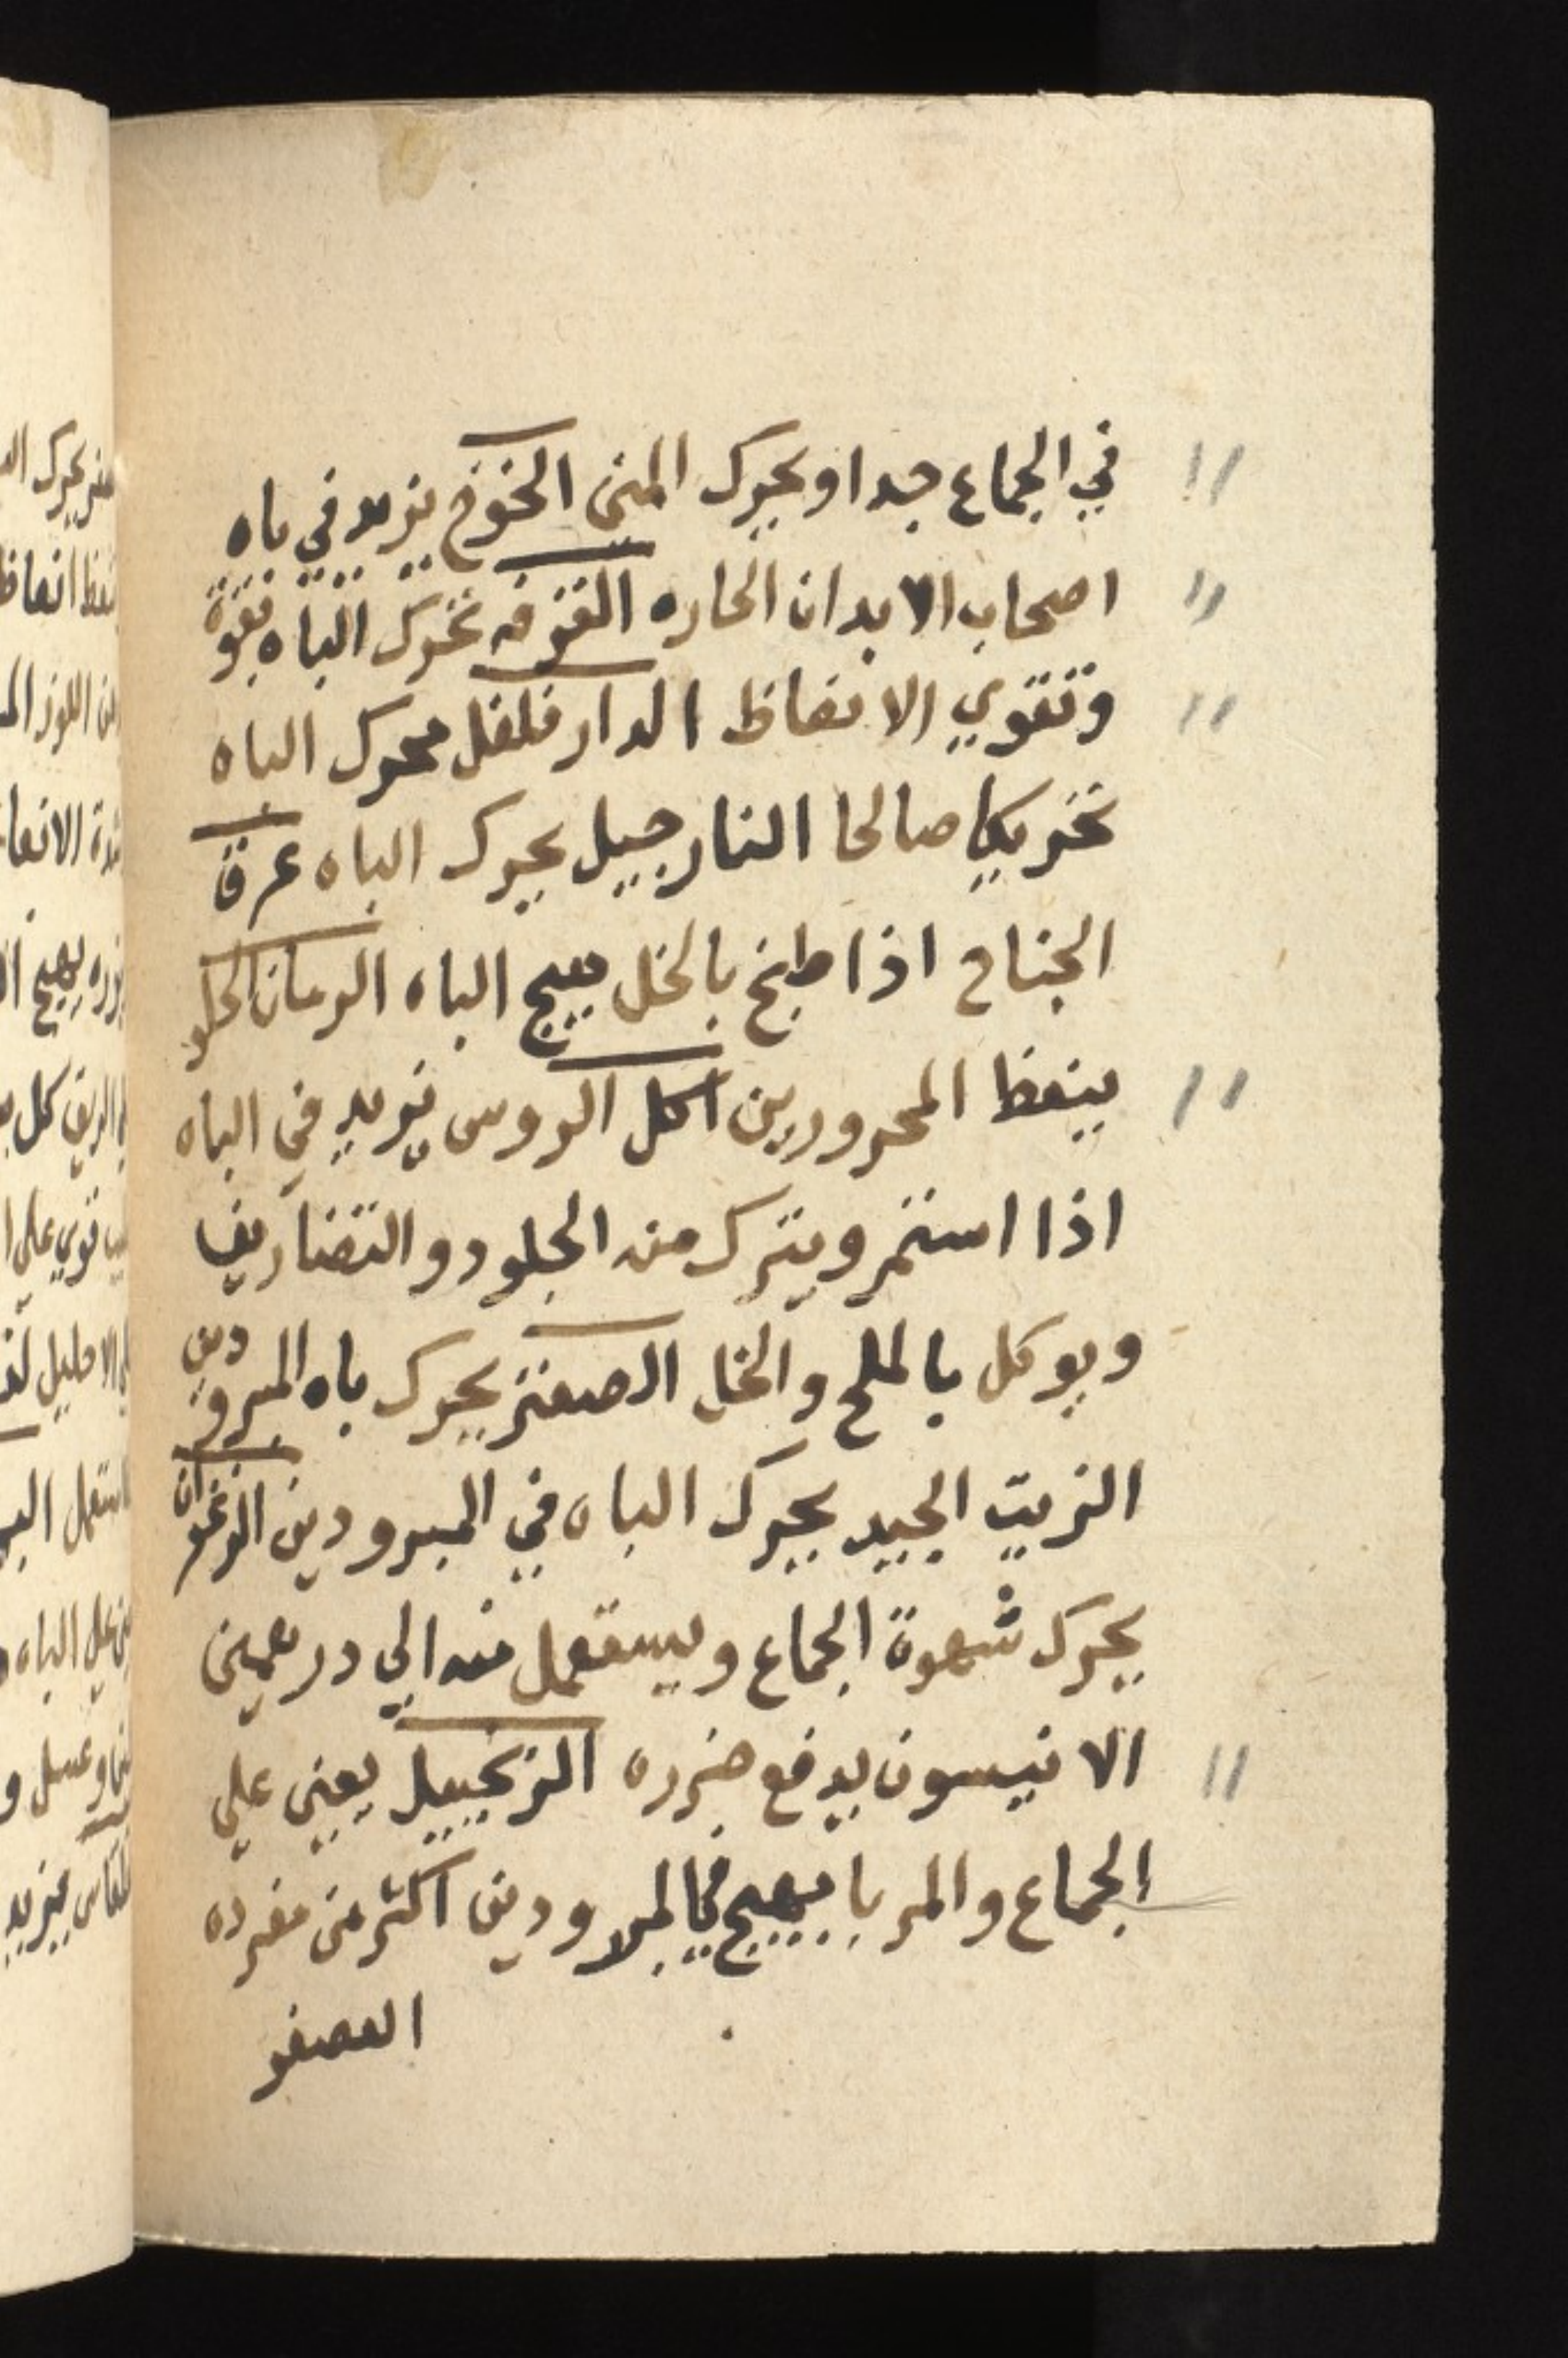 في الجماع جدا ويحرك المني الخوخ يزيد في باه
اصحاب الابدان الحاره القرفه تحرك الباه بقوة
وتقوي الانعاظ الدار فلفل محرك الباه
تحريكا صالحا النارجيل يحرك الباه عرق
الجناح اذا طبخ بالخل يهيج الباه الرمان الحلو
ينعظ المحرورين اكل الروس يزيد في الباه
اذا استمر ويترك منه الجلود والتضاريف
ويوكل بالملح والخل الصعتر يحرك باه المبرودين
الزيت الجيد يحرك الباه في المبرودين الزعفران
يحرك شهوة الجماع ويستعمل منه الي درهمين
الانيسون يدفع ضرره الزنجبيل يعين علي
الجماع والمربا يهيج في المبرودين اكثر من مفرده
العصفر